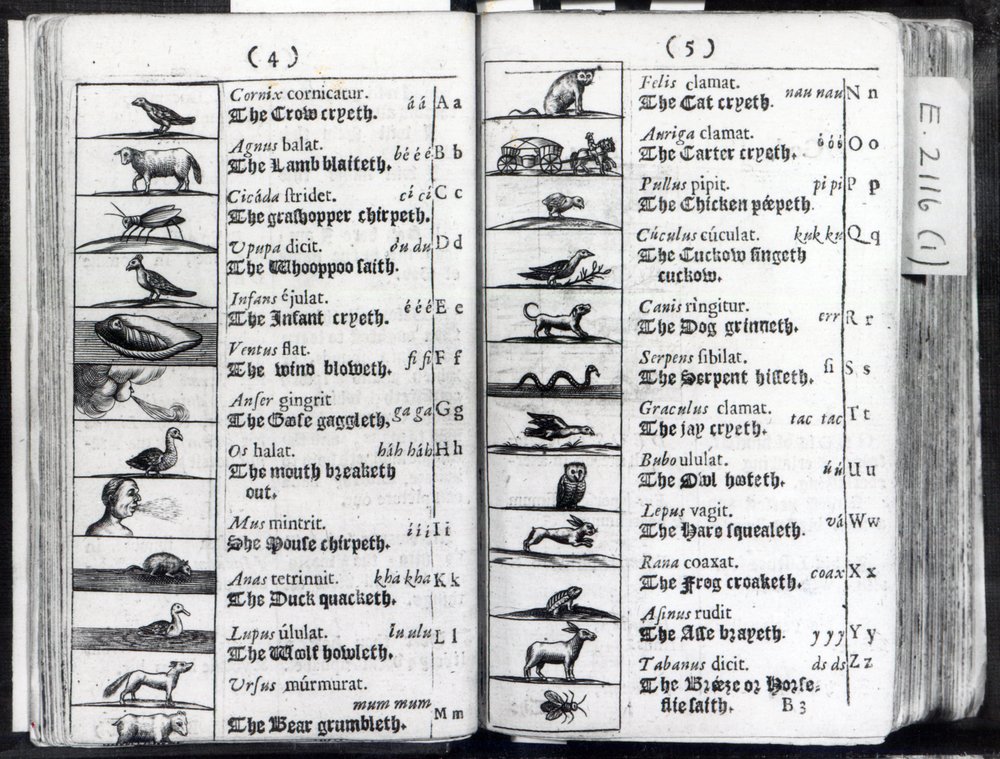 ( 4 )
Cornix cornicatur. á á A a
The Crow cryeth.
Agnus balat. bé é é B b
The Lamb blaiteth.
Cicáda ſtridet. cí cí C c
The graſhopper chirpeth.
Upupa dicit. du du D d
The Whooppoo ſaith.
Infans éjulat. é é é E e
The Infant cryeth.
Ventus flat. fi fi F f
The wind bloweth.
Anſer gingrit ga ga G g
The Gooſe gaggleth,
Os halat. háh háh H h
The mouth breaketh
out.
Mus mintrit. í í í I i
The Mouſe chirpeth.
Anas tetrinnit. kha kha K k
The Duck quacketh.
Lupus úlulat. lu ulu L l
The Wolf howleth.
Urſus múrmurat.
mum mum M m
The Bear grumbleth.
( 5 )
Felis clamat. nau nau N n
The Cat cryeth.
Auriga clamat. ó ó ó O o
The Carter cryeth.
Pullus pipit. pi pi P p
The Chicken pœpeth.
Cúculus cúculat. kuk ku Q q
The Cuckow ſingeth
cuckow.
Canis ringitur. err R r
The Dog grinneth.
Serpens ſibilat. ſi S s
The Serpent hiſſeth.
Graculus clamat. tac tac T t
The jay cryeth.
Bubo ululat. ú ú U u
The Owl hooteth.
Lepus vagit. vá W w
The Hare ſquealeth.
Rana coaxat. coax X x
The Frog croaketh.
Aſinus rudit y y y Y y
The Aſſe brayeth.
Tabanus dicit. ds ds Z z
The Breeze or Horſe-
flie ſaith. B 3
E. 2116 (1)